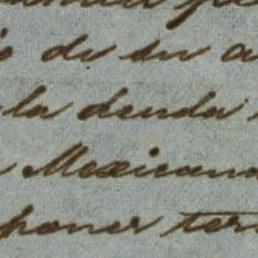 de su a
la deuda
Mexicana
poner ter